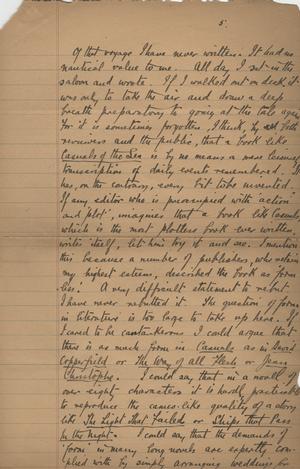 5.
Of that voyage I have never written. It had no
nautical value to me. All day I sat in the
saloon and wrote. If I walked out on deck, it
was only to take the air and draw a deep
breath preparatory to going at the tale again,
for it is sometimes forgotten, I think, by both
reviewers and the public, that a book like
Casuals of the Sea is by no means a mere
transcription of daily events remembered. It
has, on the contrary, every bit to be invented.
If any editor who is preoccupied with 'action'
and 'plot', imagines that a book like Casuals,
which is the most plotless book ever written,
writes itself, let him try it and see. I mention
this because a number of publishers, who retain
my highest esteem, described the book as form-
less. A very difficult statement to rebut.
I have never rebutted it. The question of form
in literature is too large to take up here. If
I cared to be cantankerous I could argue that
there is as much form in Casuals as in David
Copperfield or The Way of all Flesh or Jean
Christophe. I could say that in a novel of
over eighty characters it is hardly practicable
to reproduce the cameo-like quality of a story
like The Light that Failed or Ships that Pass
in the Night. I could say that the demands of
'form' in many long novels are expertly com-
plied with by simply arranging weddings for